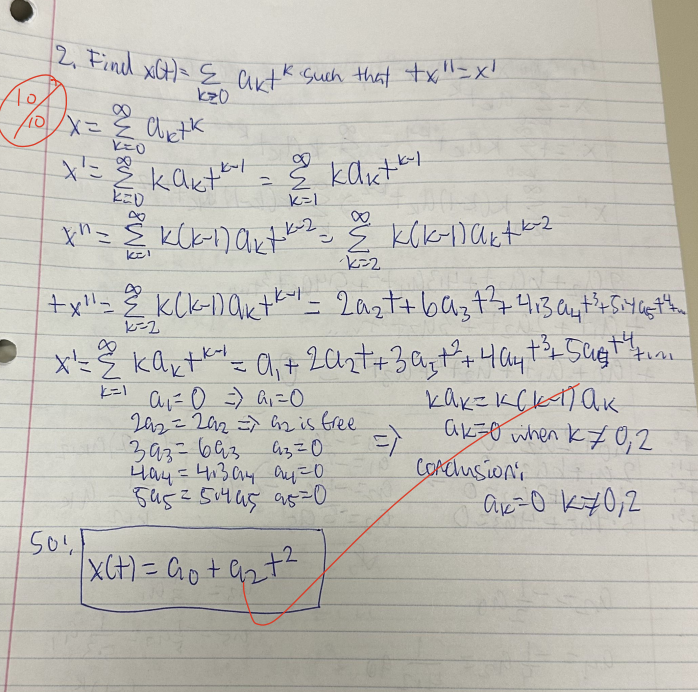 2. Find x(t) = ∑_{k≥0} a_k t^k such that tx'' = x'
10/10
x = ∑_{k=0}^{∞} a_k t^k
x' = ∑_{k=0}^{∞} k a_k t^{k-1} = ∑_{k=1}^{∞} k a_k t^{k-1}
x'' = ∑_{k=1}^{∞} k(k-1) a_k t^{k-2} = ∑_{k=2}^{∞} k(k-1) a_k t^{k-2}
tx'' = ∑_{k=2}^{∞} k(k-1) a_k t^{k-1} = 2a_2 t + 6a_3 t^2 + 4·3 a_4 t^3 + 5·4 a_5 t^4 + ...
x' = ∑_{k=1}^{∞} k a_k t^{k-1} = a_1 + 2a_2 t + 3a_3 t^2 + 4a_4 t^3 + 5a_5 t^4 + ...
a_1 = 0 => a_1 = 0
2a_2 = 2a_2 => a_2 is free
3a_3 = 6a_3 a_3 = 0
4a_4 = 4·3a_4 a_4 = 0
5a_5 = 5·4a_5 a_5 = 0
=>
k a_k = k(k-1) a_k
a_k = 0 when k ≠ 0,2
conclusion:
a_k = 0 k ≠ 0,2
so:
x(t) = a_0 + a_2 t^2